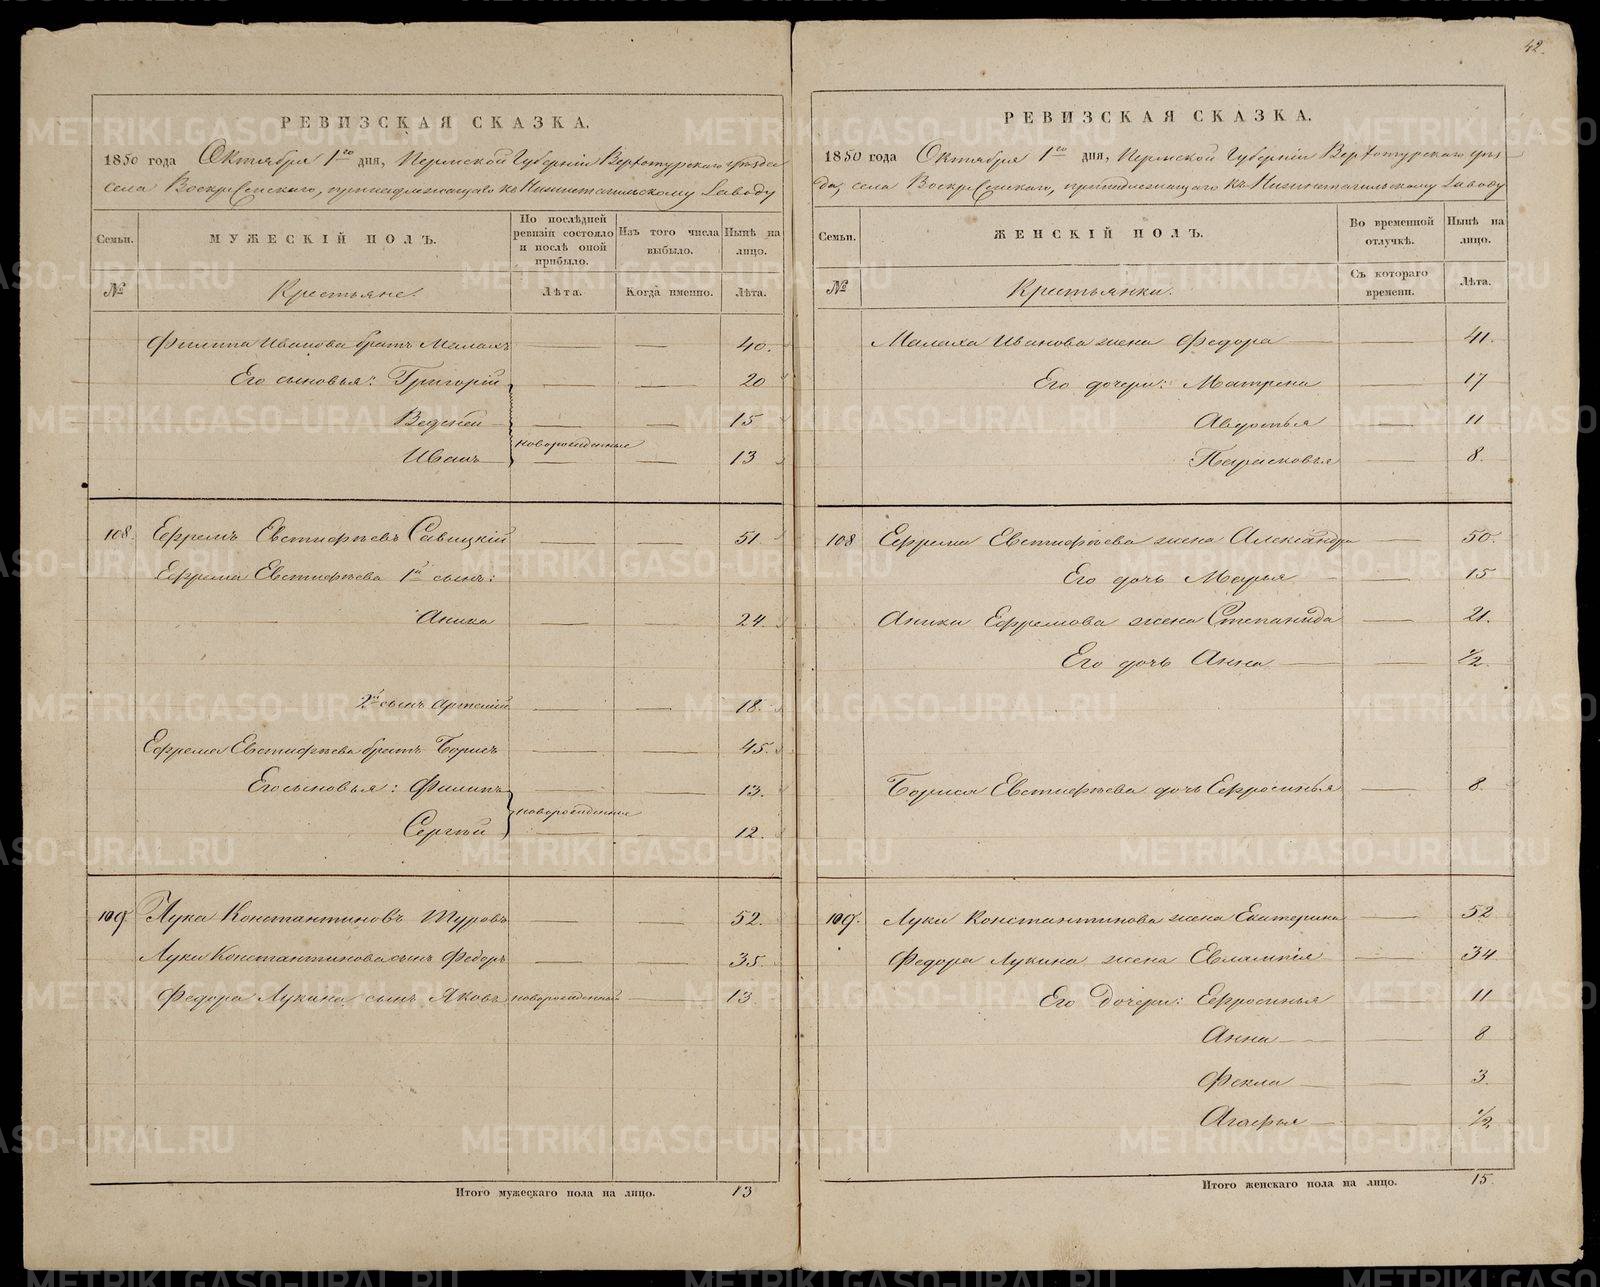 42.
РЕВИЗСКАЯ СКАЗКА.
1850 года Октября 1го дня, Пермской Губернiи Верхотурскаго уѣзда
села Воскресенскаго, принадлежащаго къ Нижнетагильскому Заводу
Семьи. МУЖЕСКIЙ ПОЛЪ. По послѣдней ревизiи состояло и послѣ оной прибыло. Изъ того числа выбыло. Нынѣ на лицо.
№ Крестьяне. Лѣта. Когда именно. Лѣта.
Филипа Иванова братъ Малахъ 40.
Его сыновья: Григорiй 20
15
новорожденные
Иванъ 13
108. Ефремъ Евстифѣевъ Савицкiй 51.
Ефрема Евстифѣева 1й сынъ:
Аника 24.
2й сынъ Артемiй 18.
Ефрема Евстифѣева братъ Борисъ 45.
Его сыновья: Филипъ 13.
новорожденные
Сергѣй 12.
109 Лука Константиновъ Шуровъ 52.
Луки Константинова сынъ Федоръ 35.
Федора Лукина сынъ Яковъ новорожденный 13
Итого мужескаго пола на лицо. 13
РЕВИЗСКАЯ СКАЗКА.
1850 года Октября 1го дня, Пермской Губернiи Верхотурскаго уѣз-
да, села Воскресенскаго, принадлежащаго къ Нижнетагильскому Заводу
Семьи. ЖЕНСКIЙ ПОЛЪ. Во временной отлучкѣ. Нынѣ на лицо.
№ Крестьянки. Съ котораго времени. Лѣта.
Малаха Иванова жена Федора 41.
Его дочери: Матрена 17
Авдотья 11
Парасковья 8.
108 Ефрема Евстифѣева жена Александра 50.
Его дочь Марья 15
Аники Ефремова жена Степанида 21.
Его дочь Анна ½.
Бориса Евстифѣева дочь Ефросинья 8
109. Луки Константинова жена Екатерина 52
Федора Лукина жена Евлампiя 34
Его Дочери: Ефросинья 11
Анна 8
Фекла 3.
Агафья ½
Итого женскаго пола на лицо. 15
METRIKI.GASO-URAL.RU